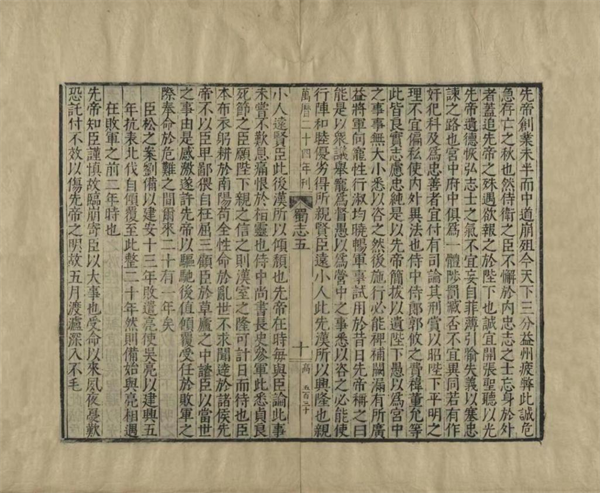 先帝創業未半而中道崩殂今天下三分益州疲弊此誠危
急存亡之秋也然侍衛之臣不懈於內忠志之士忘身於外
者蓋追先帝之殊遇欲報之於陛下也誠宜開張聖聽以光
先帝遺德恢弘志士之氣不宜妄自菲薄引喻失義以塞忠
諫之路也宮中府中俱爲一體陟罰臧否不宜異同若有作
奸犯科及爲忠善者宜付有司論其刑賞以昭陛下平明之
理不宜偏私使內外異法也侍中侍郎郭攸之費禕董允等
此皆良實志慮忠純是以先帝簡拔以遺陛下愚以爲宮中
之事事無大小悉以咨之然後施行必能裨補闕漏有所廣
益將軍向寵性行淑均曉暢軍事試用於昔日先帝稱之曰
能是以衆議舉寵爲督愚以爲營中之事悉以咨之必能使
行陣和睦優劣得所親賢臣遠小人此先漢所以興隆也親
萬曆二十四年刊
蜀志五
十
高
小人遠賢臣此後漢所以傾頹也先帝在時每與臣論此事
未嘗不歎息痛恨於桓靈也侍中尚書長史參軍此悉貞良
死節之臣願陛下親之信之則漢室之隆可計日而待也臣
本布衣躬耕於南陽苟全性命於亂世不求聞達於諸侯先
帝不以臣卑鄙猥自枉屈三顧臣於草廬之中諮臣以當世
之事由是感激遂許先帝以驅馳後值傾覆受任於敗軍之
際奉命於危難之間爾來二十有一年矣
臣松之案劉備以建安十三年敗遣亮使吳亮以建興五
年抗表北伐自傾覆至此整二十年然則備始與亮相遇
在敗軍之前二年時也
先帝知臣謹慎故臨崩寄臣以大事也受命以來夙夜憂歎
恐託付不效以傷先帝之明故五月渡瀘深入不毛